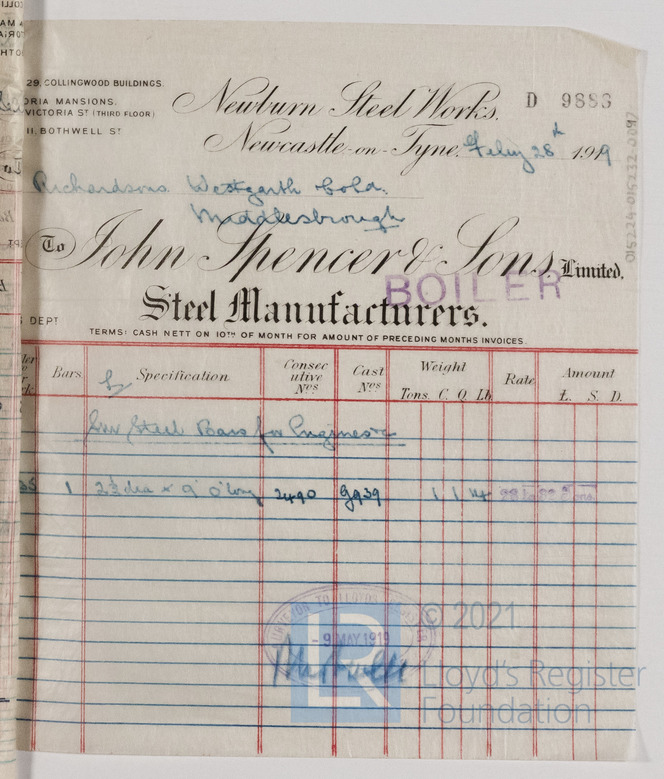 29, COLLINGWOOD BUILDINGS.
ORIA MANSIONS.
VICTORIA ST (THIRD FLOOR)
11, BOTHWELL ST
Newburn Steel Works.
D 9883
Newcastle-on-Tyne, Feby 28th 1919
Richardsons Westgarth & Co Ld.
Middlesbrough
To John Spencer & Sons, Limited.
BOILER
Steel Manufacturers.
DEPT
TERMS: CASH NETT ON 10TH OF MONTH FOR AMOUNT OF PRECEDING MONTHS INVOICES.
Bars Specification Consecutive Nos Cast Nos Weight Tons. C. Q. Lb. Rate Amount £. S. D.
Steel Bars for Engines &c
35 1 2½ dia x 9' 0" long 2490 9939 1 1 14
SURVEYOR TO LLOYD'S REGISTER
- 9 MAY 1919
© 2021
LR
Lloyd's Register
Foundation
015224-015232-0097